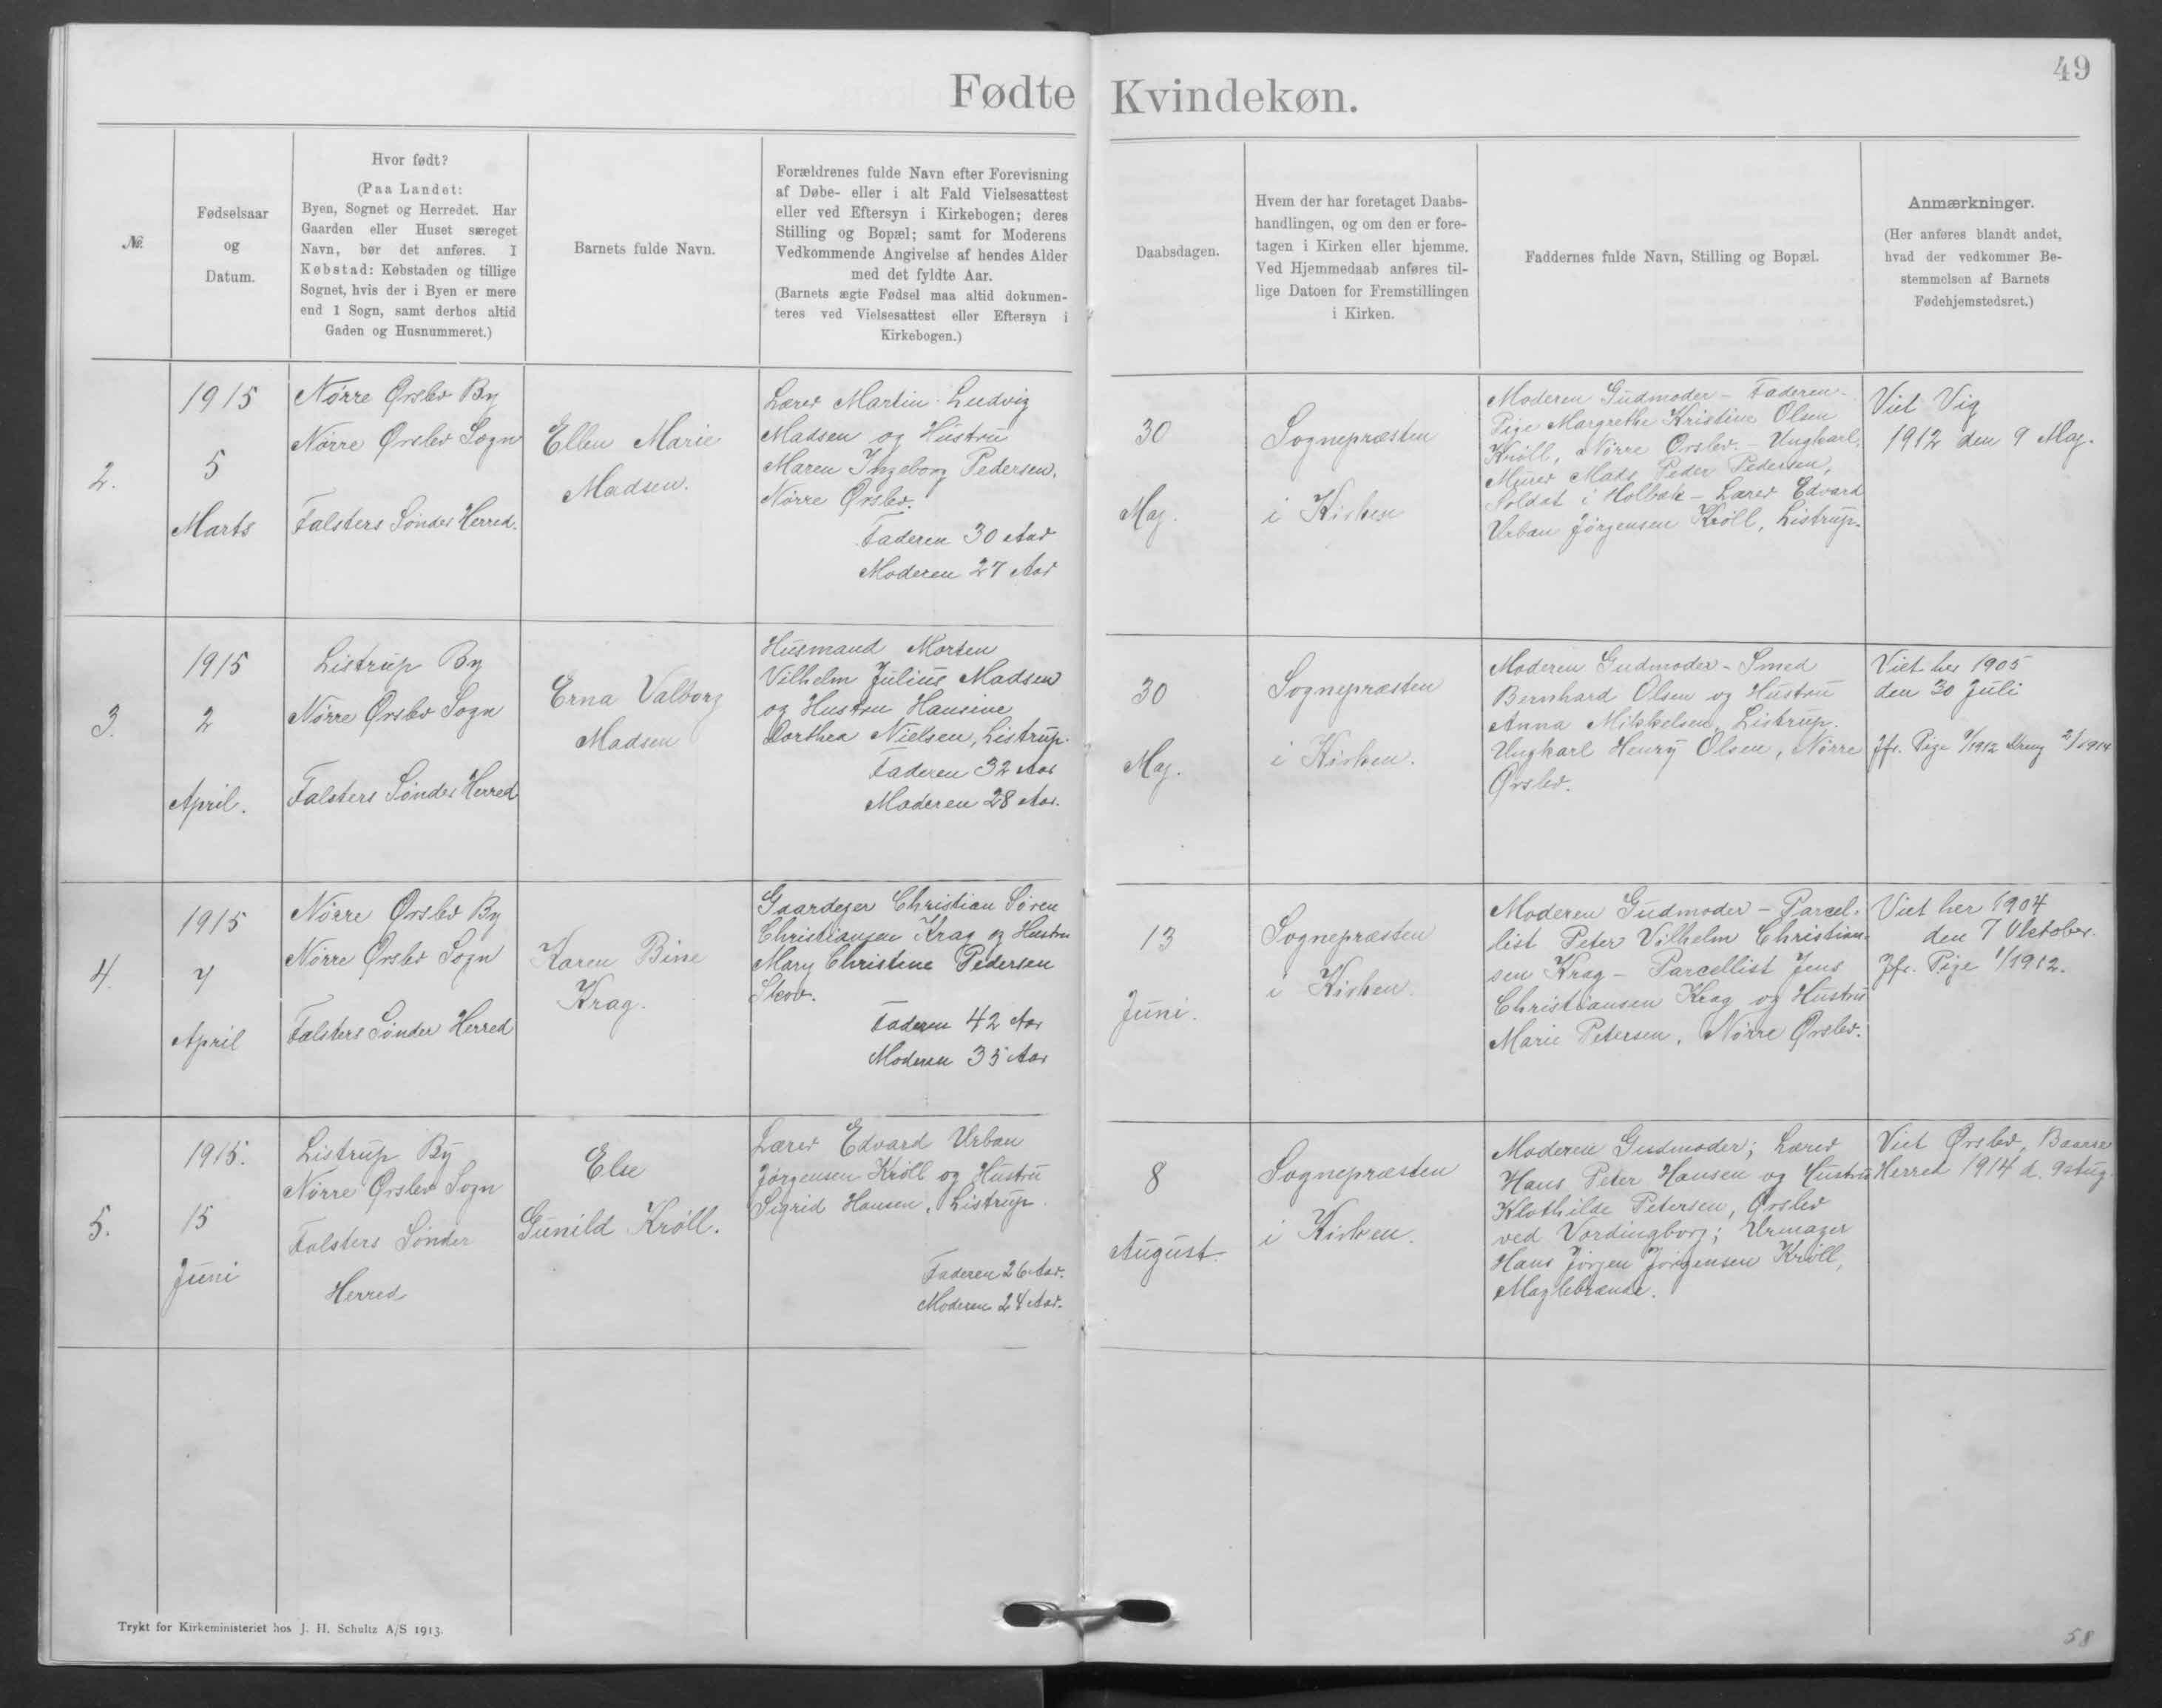 49
Fødte Kvindekøn.
№.
Fødselsaar
og
Datum.
Hvor født?
(Paa Landet:
Byen, Sognet og Herredet. Har
Gaarden eller Huset særeget
Navn, bør det anføres. I
Købstad: Købstaden og tillige
Sognet, hvis der i Byen er mere
end 1 Sogn, samt derhos altid
Gaden og Husnummeret.)
Barnets fulde Navn.
Forældrenes fulde Navn efter Forevisning
af Døbe- eller i alt Fald Vielsesattest
eller ved Eftersyn i Kirkebogen; deres
Stilling og Bopæl; samt for Moderens
Vedkommende Angivelse af hendes Alder
med det fyldte Aar.
(Barnets ægte Fødsel maa altid dokumen-
teres ved Vielsesattest eller Eftersyn i
Kirkebogen.)
Daabsdagen.
Hvem der har foretaget Daabs-
handlingen, og om den er fore-
tagen i Kirken eller hjemme.
Ved Hjemmedaab anføres til-
lige Datoen for Fremstillingen
i Kirken.
Faddernes fulde Navn, Stilling og Bopæl.
Anmærkninger.
(Her anføres blandt andet,
hvad der vedkommer Be-
stemmelsen af Barnets
Fødehjemstedsret.)
2.
1915
5
Marts
Nørre Ørslev By
Nørre Ørslev Sogn
Falsters Sønder Herred.
Ellen Marie
Madsen.
Lærer Martin Ludvig
Madsen og Hustru
Maren Ingeborg Pedersen,
Nørre Ørslev.
Faderen 30 Aar
Moderen 27 Aar
30
Maj.
Sognepræsten
i Kirken
Moderen Gudmoder - Faderen -
Pige Margrethe Kristine Olsen
Krøll, Nørre Ørslev - Ungkarl,
Murer Mads Peder Pedersen,
Soldat i Holbæk - Lærer Edvard
Urban Jörgensen Krøll, Listrup.
Viet Vig
1912 den 9 Maj.
3.
1915
2
April.
Listrup By
Nørre Ørslev Sogn
Falsters Sønder Herred
Erna Valborg
Madsen
Husmand Morten
Vilhelm Julius Madsen
og Hustru Hansine
Dorthea Nielsen, Listrup.
Faderen 32 Aar
Moderen 28 Aar.
30
Maj.
Sognepræsten
i Kirken.
Moderen Gudmoder - Smed
Bernhard Olsen og Hustru
Anna Mikkelsen, Listrup.
Ungkarl Henry Olsen, Nørre
Ørslev.
Viet her 1905
den 30 Juli
Jfr. Pige /1912 Dreng 2/1914
4.
1915
7
April
Nørre Ørslev By
Nørre Ørslev Sogn
Falsters Sønder Herred
Karen Bine
Krag.
Gaardejer Christian Sören
Christiansen Krag og Hustru
Mary Christine Pedersen
Skov.
Faderen 42 Aar
Moderen 35 Aar
13
Juni.
Sognepræsten
i Kirken.
Moderen Gudmoder - Parcel-
list Peter Vilhelm Christian-
sen Krag - Parcellist Jens
Christiansen Krag og Hustru
Marie Petersen, Nørre Ørslev.
Viet her 1904
den 7 Oktober.
Jfr. Pige 1/1912.
5.
1915.
15
Juni
Listrup By
Nørre Ørslev Sogn
Falsters Sønder
Herred
Else
Gunild Krøll.
Lærer Edvard Urban
Jørgensen Krøll og Hustru
Sigrid Hansen, Listrup.
Faderen 26 Aar.
Moderen 24 Aar.
8
August.
Sognepræsten
i Kirken.
Moderen Gudmoder; Lærer
Hans Peter Hansen og Hustru
Klothilde Petersen, Ørslev
ved Vordingborg; Urmager
Hans Jörgen Jörgensen Krøll,
Maglebrænde.
Viet Ørslev, Baarse
Herred 1914 d. 9 Aug.
Trykt for Kirkeministeriet hos J. H. Schultz A/S 1913.
58